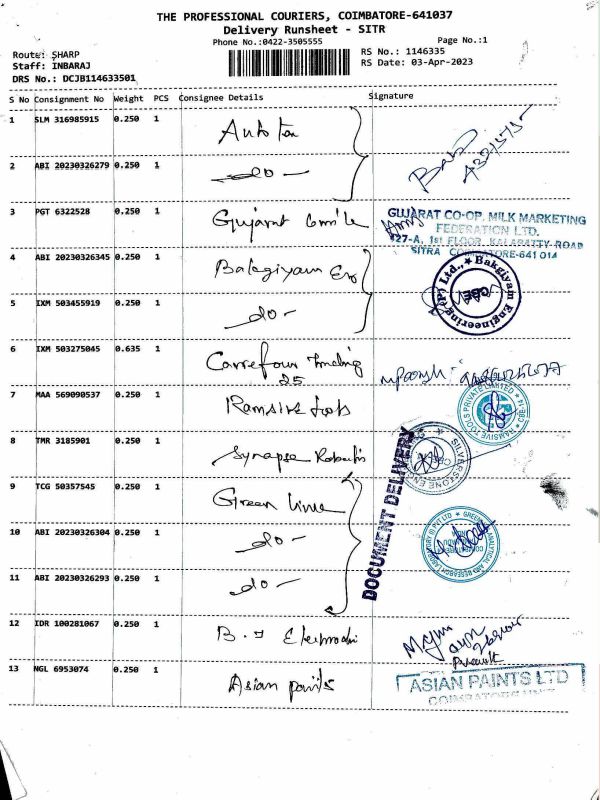 THE PROFESSIONAL COURIERS, COIMBATORE-641037
Delivery Runsheet - SITR
Phone No.:0422-3505555
Page No.:1
Route: SHARP
RS No.: 1146335
Staff: INBARAJ
RS Date: 03-Apr-2023
DRS No.: DCJB114633501
S No Consignment No Weight PCS Consignee Details Signature
1 SLM 316985915 0.250 1
2 ABI 20230326279 0.250 1 do
3 PGT 6322528 0.250 1 Gujarat
GUJARAT CO-OP. MILK MARKETING
FEDERATION LTD.
27-A, 1st FLOOR, KALAPATTY-ROAD
SITRA COIMBATORE-641 014
4 ABI 20230326345 0.250 1 Bakgiyam Eng
Bakgiyam Engineering (P) Ltd., CBE
5 IXM 503455919 0.250 1 do
6 IXM 503275045 0.635 1 Carrefour Trading
25
7 MAA 569090537 0.250 1 Ramsive tools
RAMSIVE TOOLS PRIVATE LIMITED
8 TMR 3185901 0.250 1 Synapse Robotics
DOCUMENT DELIVERY
9 TCG 50357545 0.250 1 Green
10 ABI 20230326304 0.250 1 do
11 ABI 20230326293 0.250 1 do
12 IDR 100281067 0.250 1 B.
13 NGL 6953074 0.250 1 Asian paints
ASIAN PAINTS LTD
COIMBATORE UNIT